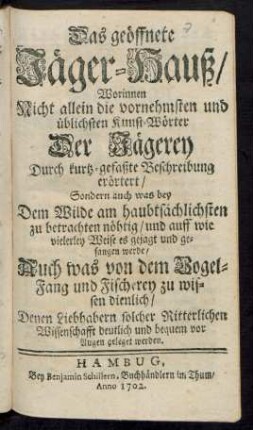 Das geöffnete
Jäger-Hauß/
Worinnen
Nicht allein die vornehmsten und
üblichsten Kunst-Wörter
Der Jägerey
Durch kurtz-gefaßte Beschreibung
erörtert/
Sondern auch was bey
Dem Wilde am haubtsächlichsten
zu betrachten nöhtig/ und auff wie
vielerley Weise es gejagt und ge-
fangen werde/
Auch was von dem Vogel-
Fang und Fischerey zu wis-
sen dienlich/
Denen Liebhabern solcher Ritterlichen
Wissenschafft deutlich und bequem vor
Augen geleget werden.
HAMBUG,
Bey Benjamin Schillern, Buchhändlern im Thum/
Anno 1702.